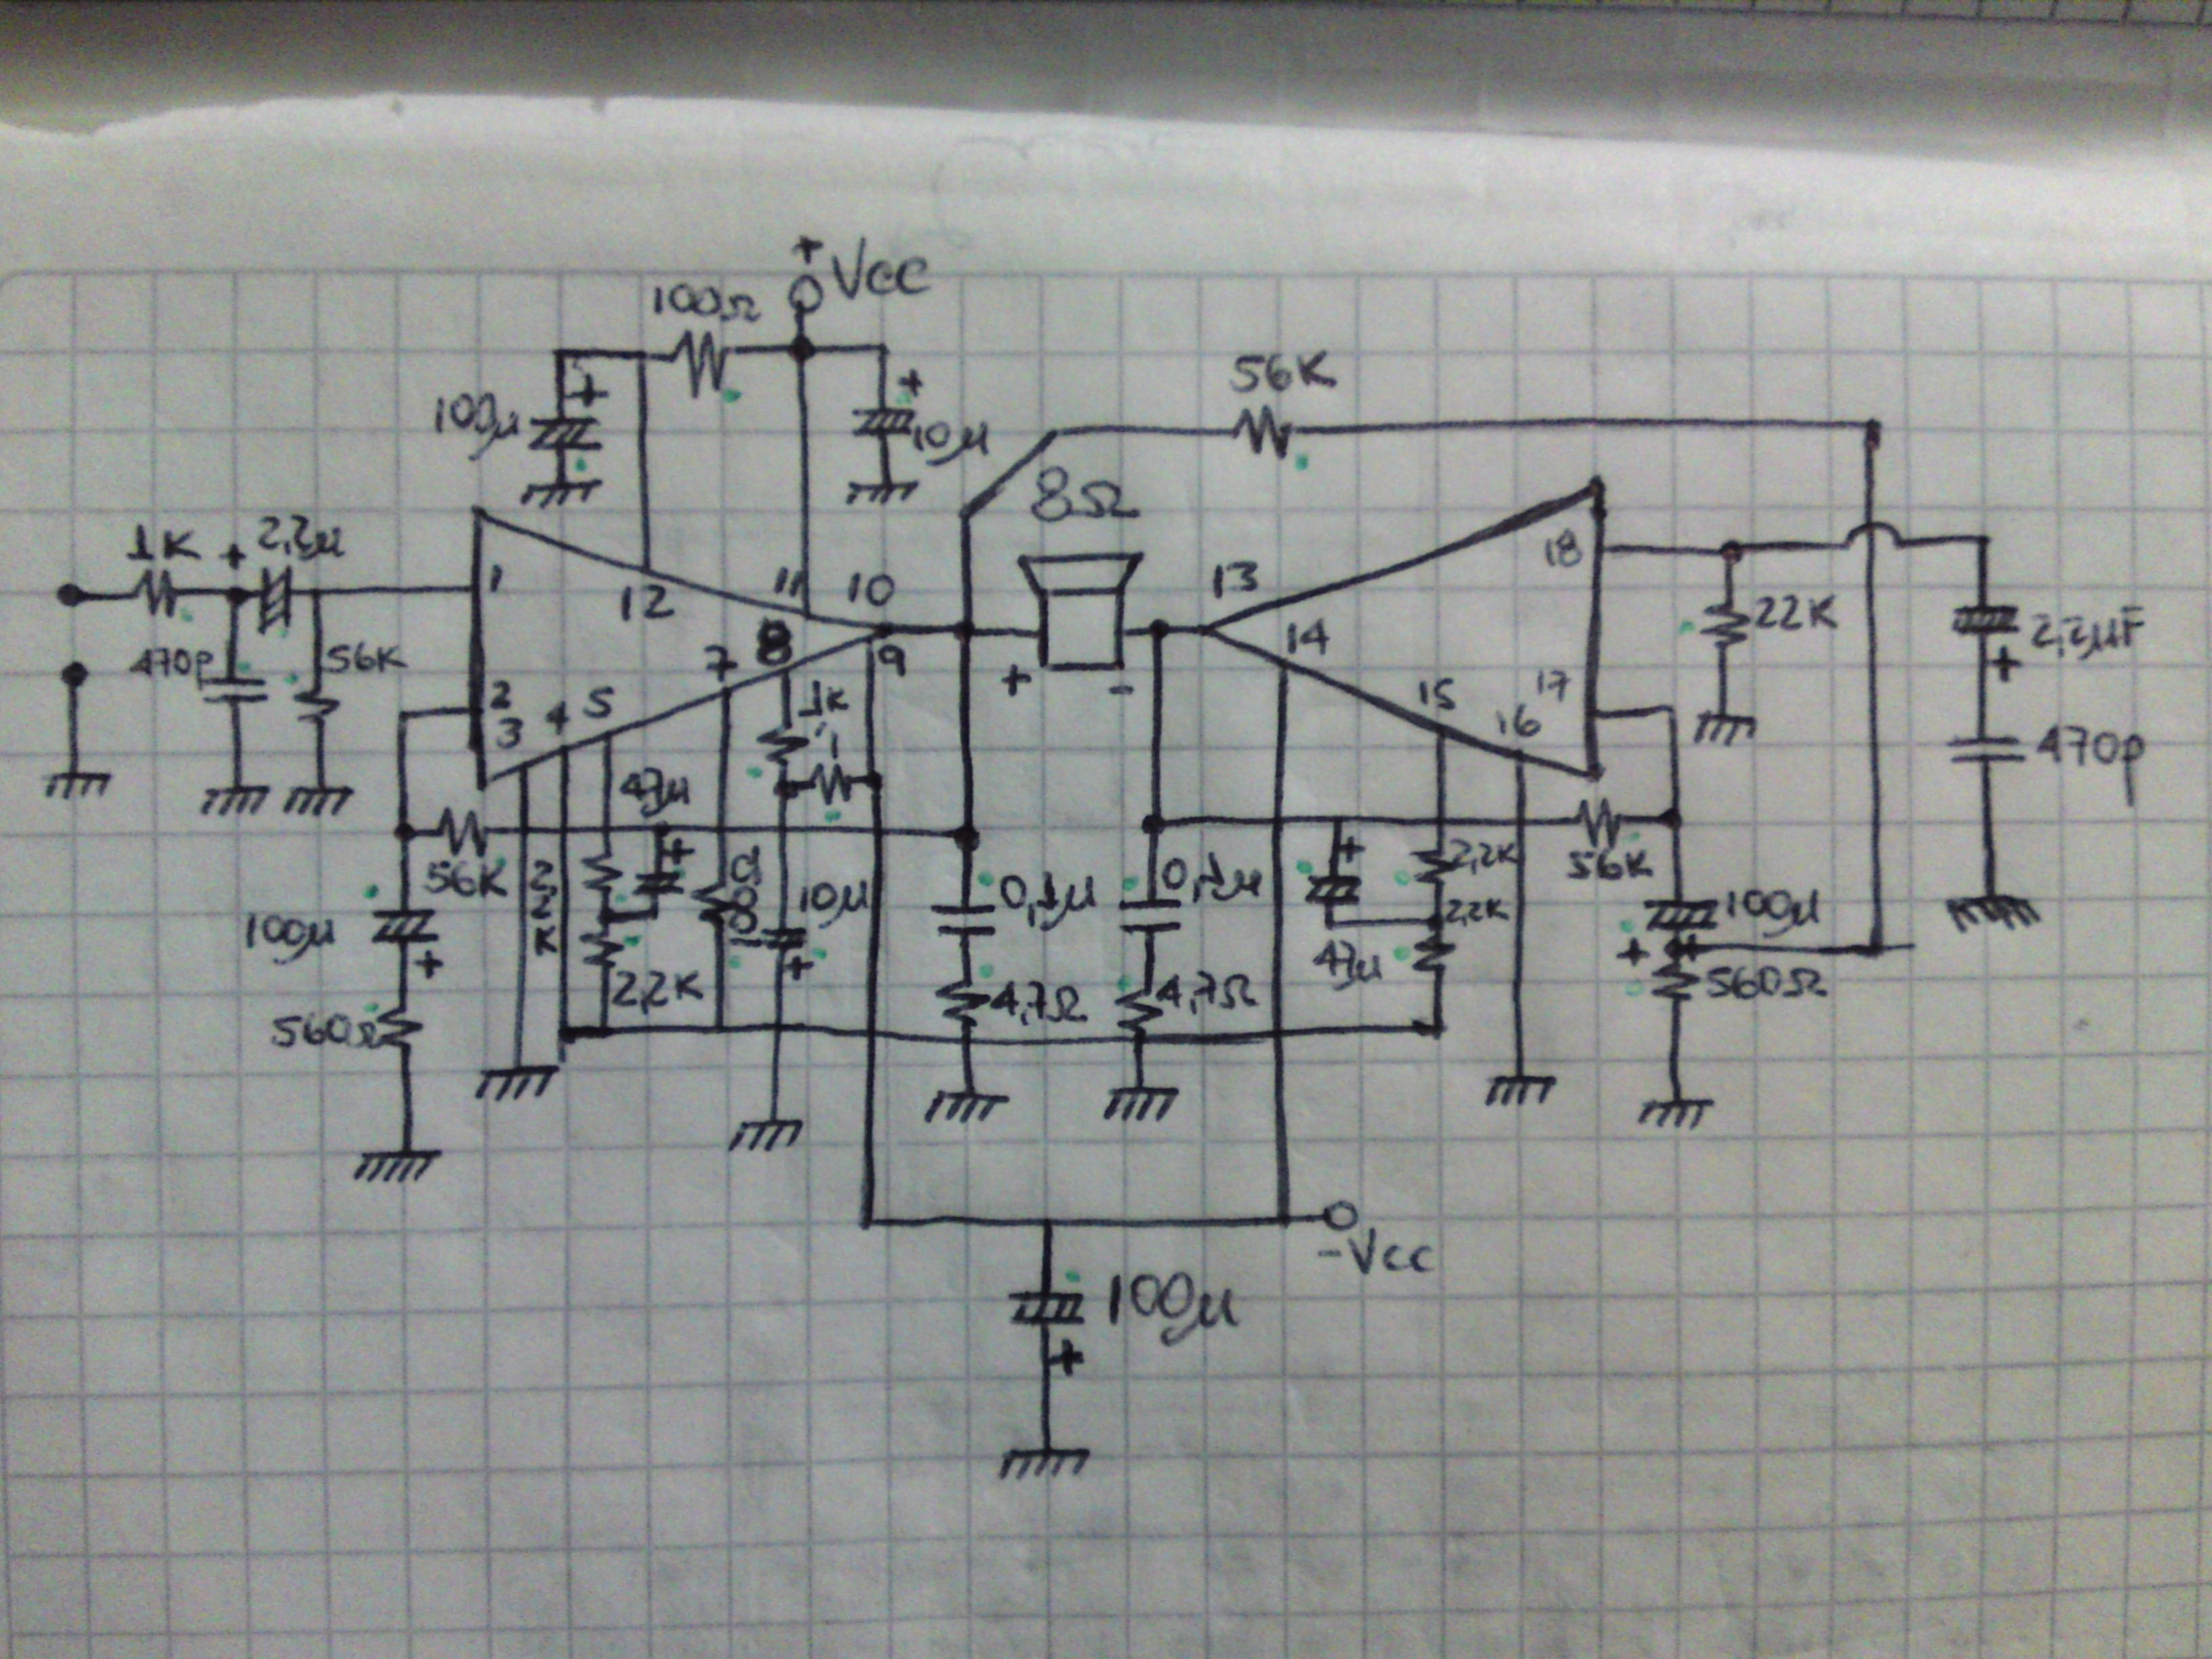 +
Vcc
100Ω
56K
+
+
100µ
10µ
8Ω
1K + 2,2µ
1
12
11
10
13
18
14
22K
2,2µF
+
470p
56K
2
3
4
5
7
8
9
+
-
15
16
17
1K
470p
47µ
56K
2,2K
+
100Ω
10µ
+
0,1µ
0,1µ
+
2,2K
2,2K
56K
100µ
+
2,2K
47µ
100µ
+
560Ω
4,7Ω
4,7Ω
560Ω
-Vcc
100µ
+